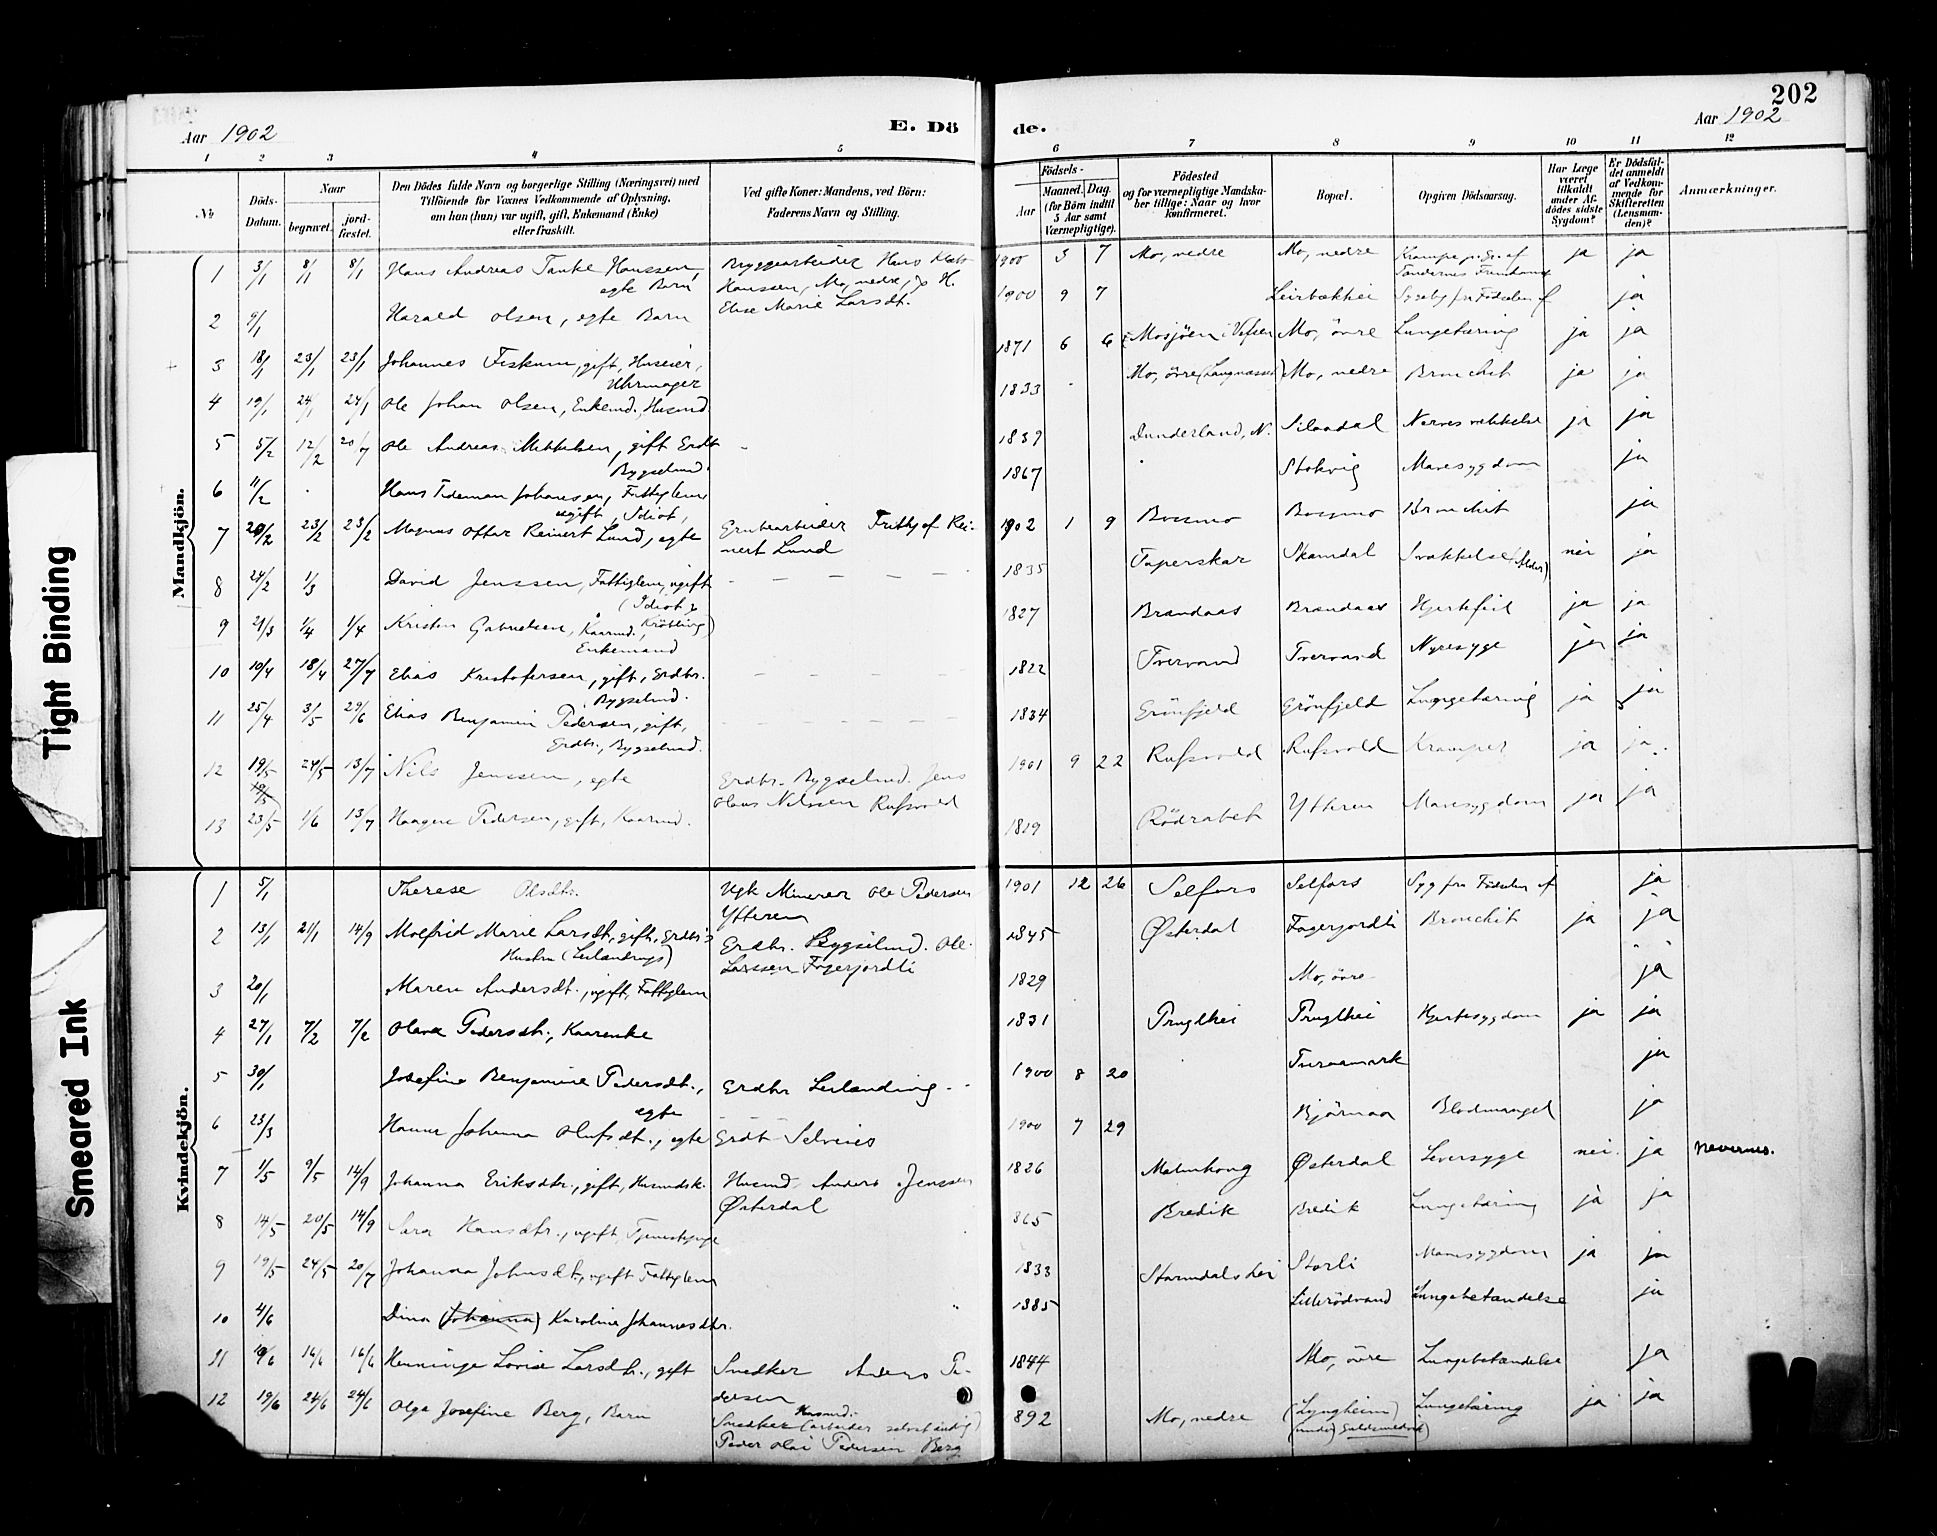 202
Aar 1902
E. Dö
de.
Aar 1902
1 2 3 4 5 6 7 8 9 10 11 12
No
Döds-Datum.
Naar
begravet.
jord-fæstet.
Den Dödes fulde Navn og borgerlige Stilling (Næringsvei) med
Tilföiende for Voxnes Vedkommende af Oplysning,
om han (hun) var ugift, gift, Enkemand (Enke)
eller fraskilt.
Ved gifte Koner: Mandens, ved Börn:
Faderens Navn og Stilling.
Födsels-
Aar
Maaned. Dag.
(for Börn indtil
5 Aar samt
Værnepligtige).
Födested
og for værnepligtige Mandska-
ber tillige: Naar og hvor
konfirmeret.
Bopæl.
Opgiven Dödsaarsag.
Har Læge
været
tilkaldt
under Af-
dödes sidste
Sygdom?
Er Dödsfal-
det anmeldt
af Vedkom-
mende for
Skifteretten
(Lensman-
den)?
Anmærkninger.
Mandkjön.
1 3/1 8/1 8/1 Hans Andreas Tanke Hanssen, egte Barn Bryggearbeider Hans
Hanssen, Mo, nedre, & H.
Elise Marie Larsdt. 1900 3 7 Mo, nedre Mo, nedre Krampe ja ja
2 9/1 Harald Olsen, egte Barn 1900 9 7 Leirbækhei Sygelig fra Födselen af ja
3 18/1 23/1 23/1 Johannes Fiskum, gift, Huseier,
Uhrmager 1871 6 6 Mosjöen i Vefsen Mo, övre Lungetæring ja ja
4 19/1 24/1 24/1 Ole Johan Olsen, Enkemd., Husmd. 1833 Mo, övre (Langnæsset) Mo, nedre Bronchit ja ja
5 5/2 12/2 20/7 Ole Andreas Mikkelsen, gift Erdbr.
Bygselmd. 1839 Dunderland, N. Silaadal Nervesvækkelse ja ja
6 11/2 Hans Tideman Johansen, Fattiglem
ugift, Idiot, 1867 Stokvig Mavesygdom ja
7 20/2 23/2 23/2 Magnus Ottar Reinert Lund, egte Grubearbeider Frithjof Rei-
nert Lund 1902 1 9 Bossmo Bossmo Bronchit ja
8 24/2 1/3 David Jenssen, Fattiglem, ugift
(Idiot & Kröbling) 1835 Taperskar Skamdal Svækkelse (Alder) nei ja
9 21/3 1/4 1/4 Kristen Gabrielsen, Kaarmd.,
Enkemand 1827 Brandaas Brandaas Hjertefeil ja ja
10 10/4 18/4 27/7 Elias Kristofersen, gift, Erdbr.
Bygselmd. 1822 Tvervand Tvervand Nyresyge ja ja
11 25/4 3/5 29/6 Elias Benjamin Pedersen, gift,
Erdbr., Bygselmd. 1834 Grönfjeld Grönfjeld Lungetæring ja ja
12 19/5 24/5 13/7 Nils Jenssen, egte Erdbr. Bygselmd. Jens
Olaus Nilssen Rufsvold 1901 9 22 Rufsvold Rufsvold Kramper ja ja
13 23/5 1/6 13/7 Haagen Pedersen, gift, Kaarmd. 1819 Rödrabet Ytteren Mavesygdom ja ja
Kvindekjön.
1 5/1 Therese Olsdtr. Ugk Minerer Ole Pedersen
Ytteren 1901 12 26 Selfors Selfors Syg fra Födselen af ja
2 13/1 21/1 14/9 Molfrid Marie Larsdt., gift, Erdbr.s
Hustru (Leilændings) Erdbr. Bygselmd. Ole
Larssen Fagerjordli 1845 Østerdal Fagerjordli Bronchit ja ja
3 20/1 Maren Andersdt., ugift, Fattiglem 1829 Mo, övre ja
4 27/1 7/2 7/2 Olava Pedersdt., Kaarenke 1831 Pruglhei Pruglhei Hjertesygdom ja ja
5 30/1 Josefine Benjamine Pedersdt.,
egte Erdbr Leilænding 1900 8 20 Tverremark ja
6 23/3 Hanna Johanna Olufsdt., egte Erdt Selveies 1900 7 29 Bjørnaa Blodmangel ja
7 1/5 9/5 14/9 Johanna Eriksdtr., gift, Husmdsk. Husmd Anders Jenssen
Østerdal 1826 Malmhaug Østerdal Leversyge nei ja Nevernes.
8 14/5 20/5 14/9 Sara Hansdtr., ugift, Tjenestepige 865 Bredik Bredik Lungetæring ja ja
9 19/5 24/5 20/7 Johanna Johnsdt., ugift Fattiglem 1833 Stormdalshei Storli Mavesygdom ja ja
10 4/6 Dina (Johanna) Karolina Johannesdtr. 1885 Lillerödvand Lungebetændelse ja
11 10/6 16/6 16/6 Henninge Lovise Larsdtr., gift Snedker Anders Pe-
dersen 1844 Mo, övre Lungebetændelse ja
12 19/6 24/6 24/6 Olga Josefine Berg, Barn Husmd.
Snedker (arbeider selvstændig)
Peder Olai Pedersen Berg 892 Mo, nedre (Lyngheim)
(under Guldsmedvik) Lungetæring ja ja
Tight Binding
Smeared Ink